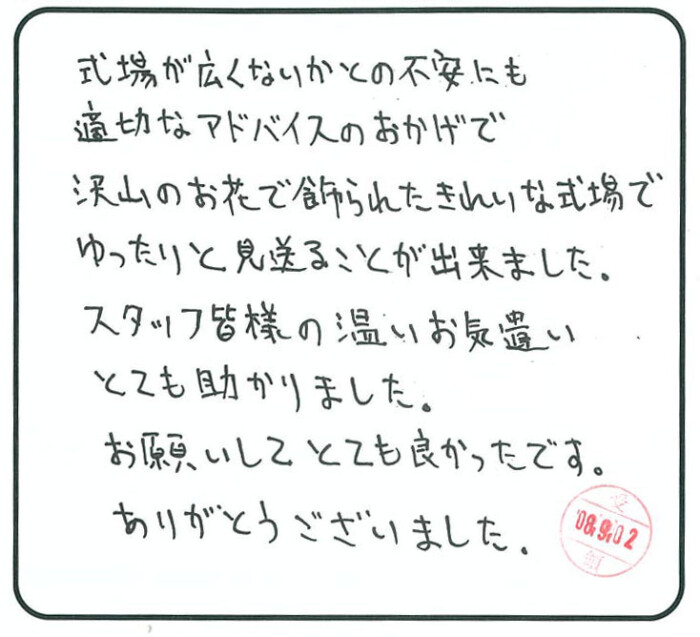 式場が広くないかとの不安にも
適切なアドバイスのおかげで
沢山のお花で飾られたきれいな式場で
ゆったりと見送ることが出来ました。
スタッフ皆様の温いお気遣い
とても助かりました。
お願いしてとても良かったです。
ありがとうございました。
'08.9.02